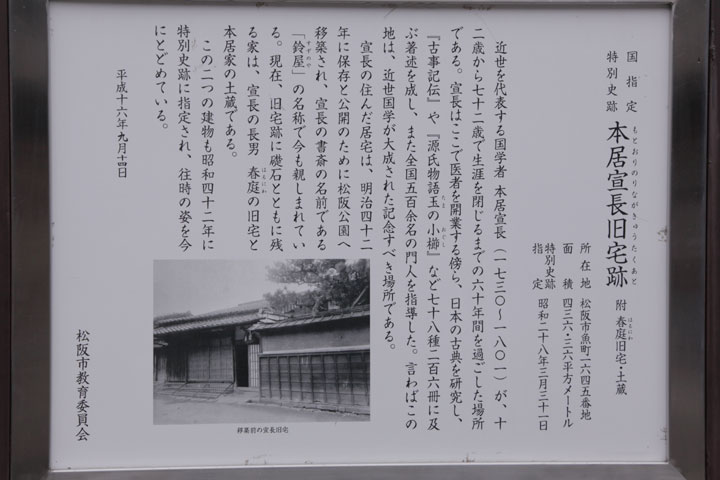 国指定
特別史跡
本居宣長旧宅跡
もとおりのりながきゅうたくあと
附 春庭旧宅・土蔵
はるにわ
所在地 松阪市魚町一六四五番地
面積 四三六・三六平方メートル
特別史跡
指定 昭和二十八年三月三十一日
近世を代表する国学者 本居宣長(一七三〇〜一八〇一)が、十
二歳から七十二歳で生涯を閉じるまでの六十年間を過ごした場所
である。宣長はここで医者を開業する傍ら、日本の古典を研究し、
『古事記伝』や『源氏物語玉の小櫛』など七十八種二百六冊に及
たま をぐし
ぶ著述を成し、また全国五百余名の門人を指導した。言わばこの
地は、近世国学が大成された記念すべき場所である。
宣長の住んだ居宅は、明治四十二
年に保存と公開のために松阪公園へ
移築され、宣長の書斎の名前である
「鈴屋」の名称で今も親しまれてい
すずのや
る。現在、旧宅跡に礎石とともに残
る家は、宣長の長男 春庭の旧宅と
はるにわ
本居家の土蔵である。
この二つの建物も昭和四十二年に
特別史跡に指定され、往時の姿を今
にとどめている。
平成十六年九月十四日
移築前の宣長旧宅
松阪市教育委員会